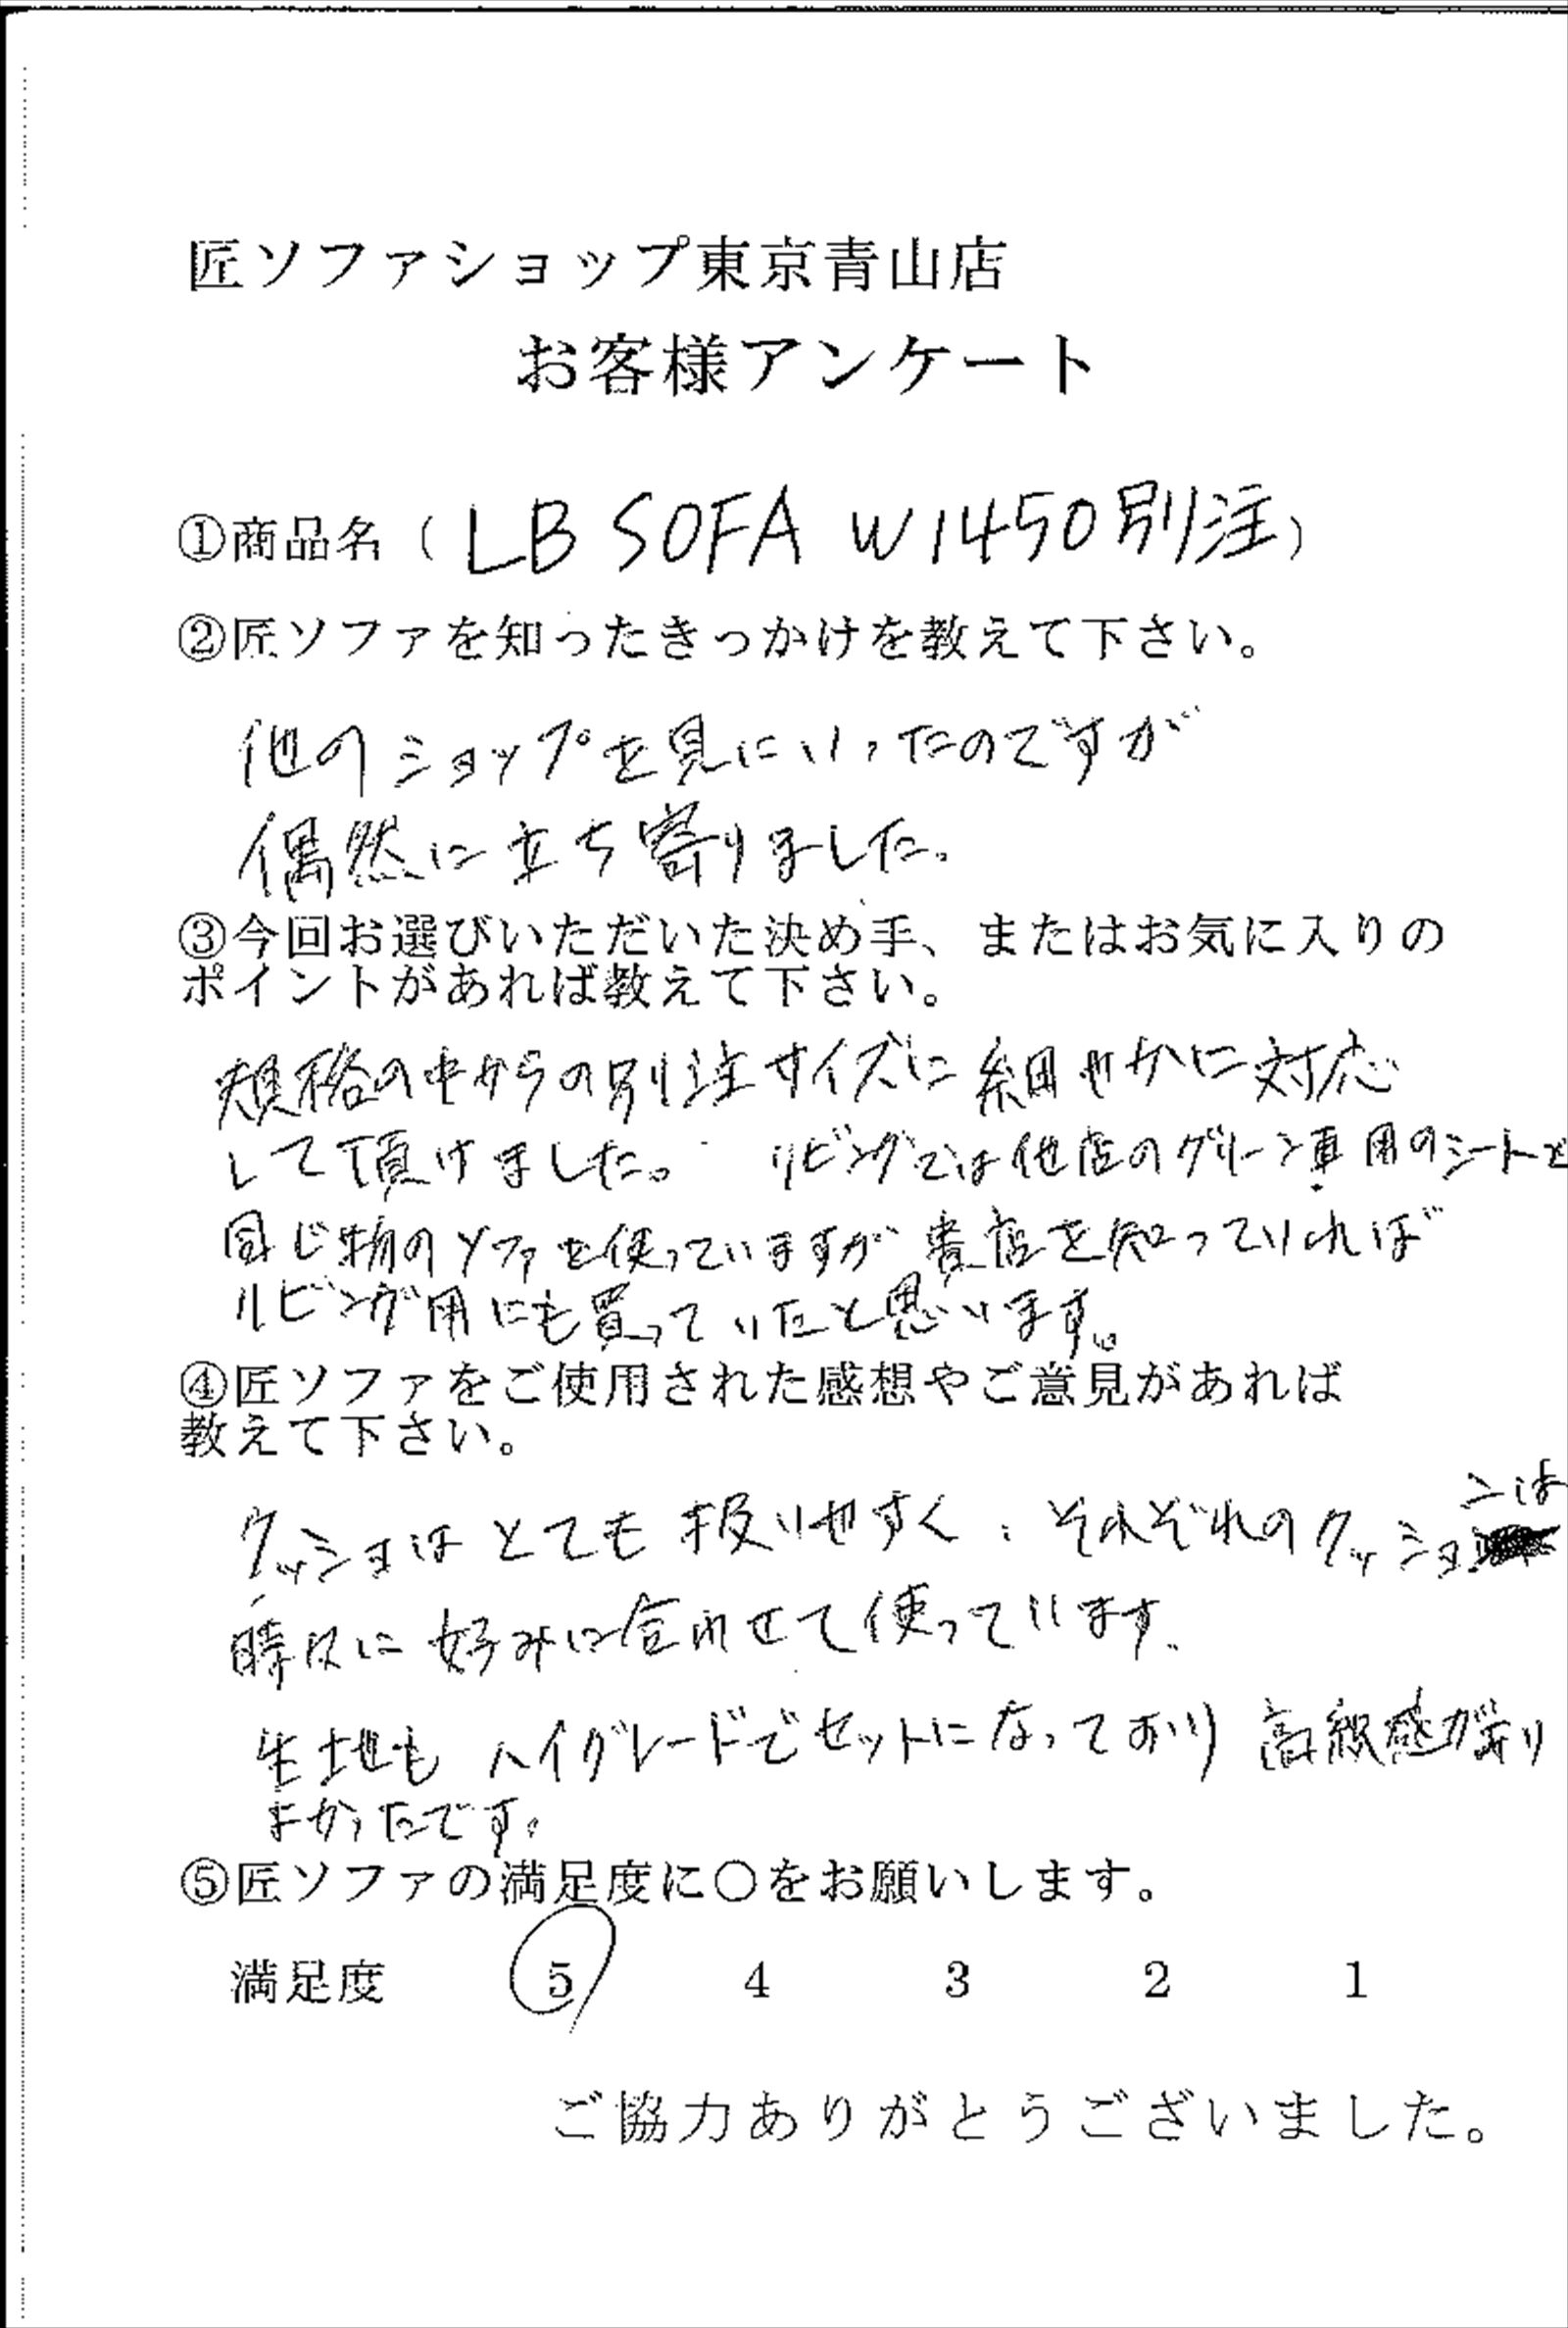 匠ソファショップ東京青山店
お客様アンケート
①商品名（LB SOFA W1450別注）
②匠ソファを知ったきっかけを教えて下さい。
他のショップを見にいったのですが
偶然に立ち寄りました。
③今回お選びいただいた決め手、またはお気に入りの
ポイントがあれば教えて下さい。
規格の中からの別注サイズに細やかに対応
して頂けました。リビングでは他店のグリーン車用のシートと
同じ物のソファを使っていますが貴店を知っていれば
リビング用にも買っていたと思います。
④匠ソファをご使用された感想やご意見があれば
教えて下さい。
クッショはとても扱いやすく、それぞれのクッションは
時々に好みに合わせて使っています。
生地もハイグレードでセットになっており高級感が有り
よかったです。
⑤匠ソファの満足度に〇をお願いします。
満足度 5 4 3 2 1
ご協力ありがとうございました。